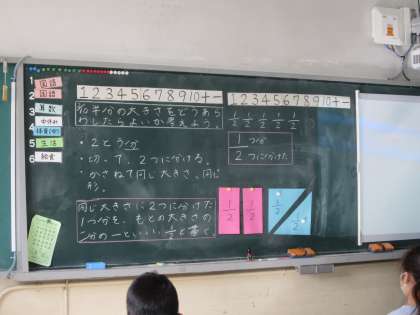 1
国語
国語
3
算数
中休み
4
体育(か)
5
生活
6
給食
1 2 3 4 5 6 7 8 9 10 + -
半分の大きさをどうあら
わしたらよいか考えよう。
・2とう分
・切って、2つに分ける。
・かさねて同じ大きさ、同じ
形。
同じ大きさに2つに分けた
1つ分を、もとの大きさの
二分の一といい、1/2と書く。
1 2 3 4 5 6 7 8 9 10 + -
1/2 1/2 1/2 1/2 1/2
1 つ分
2 つに分けた
1/2
1/2
1/2
1/2